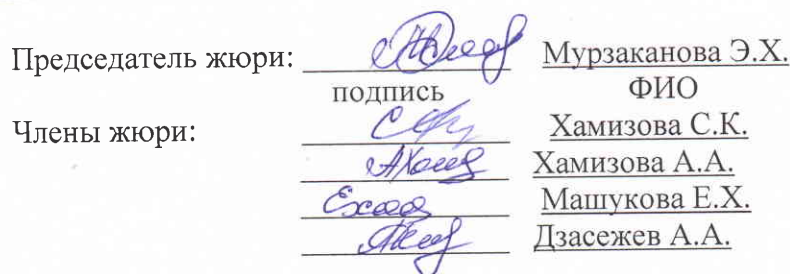 Председатель жюри: Мурзаканова Э.Х.
подпись ФИО
Члены жюри: Хамизова С.К.
Хамизова А.А.
Машукова Е.Х.
Дзасежев А.А.